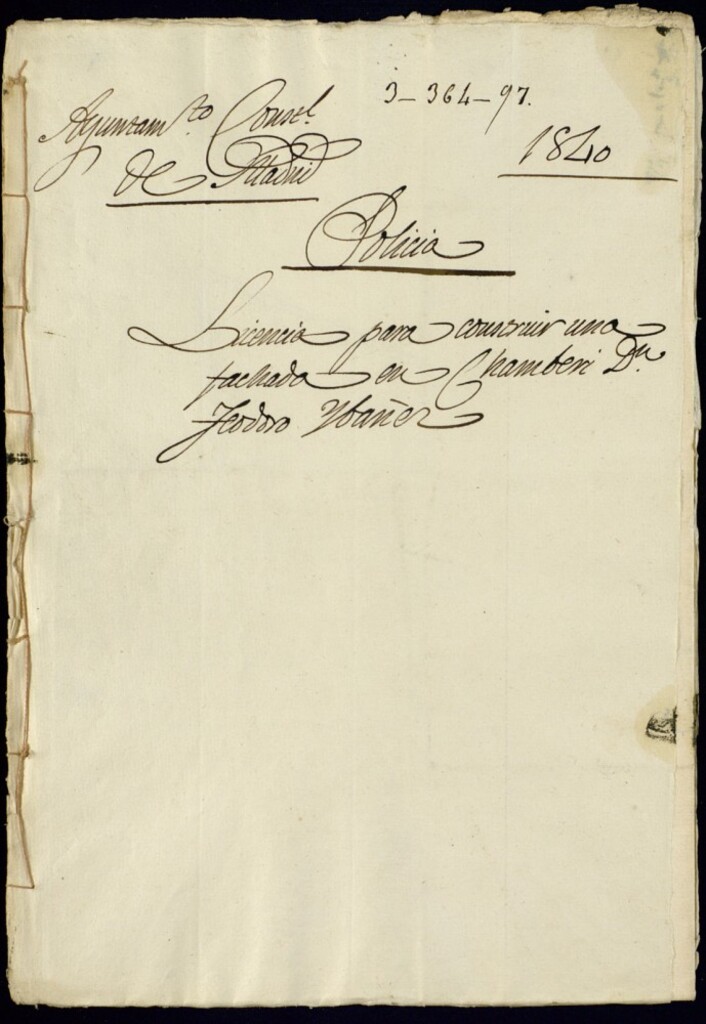 3-364-97.
Ayuntam.to Const.l
de Madrid
1840
Policia
Licencia para construir una
fachada en Chamberi Dn.
Teodoro Ybañez